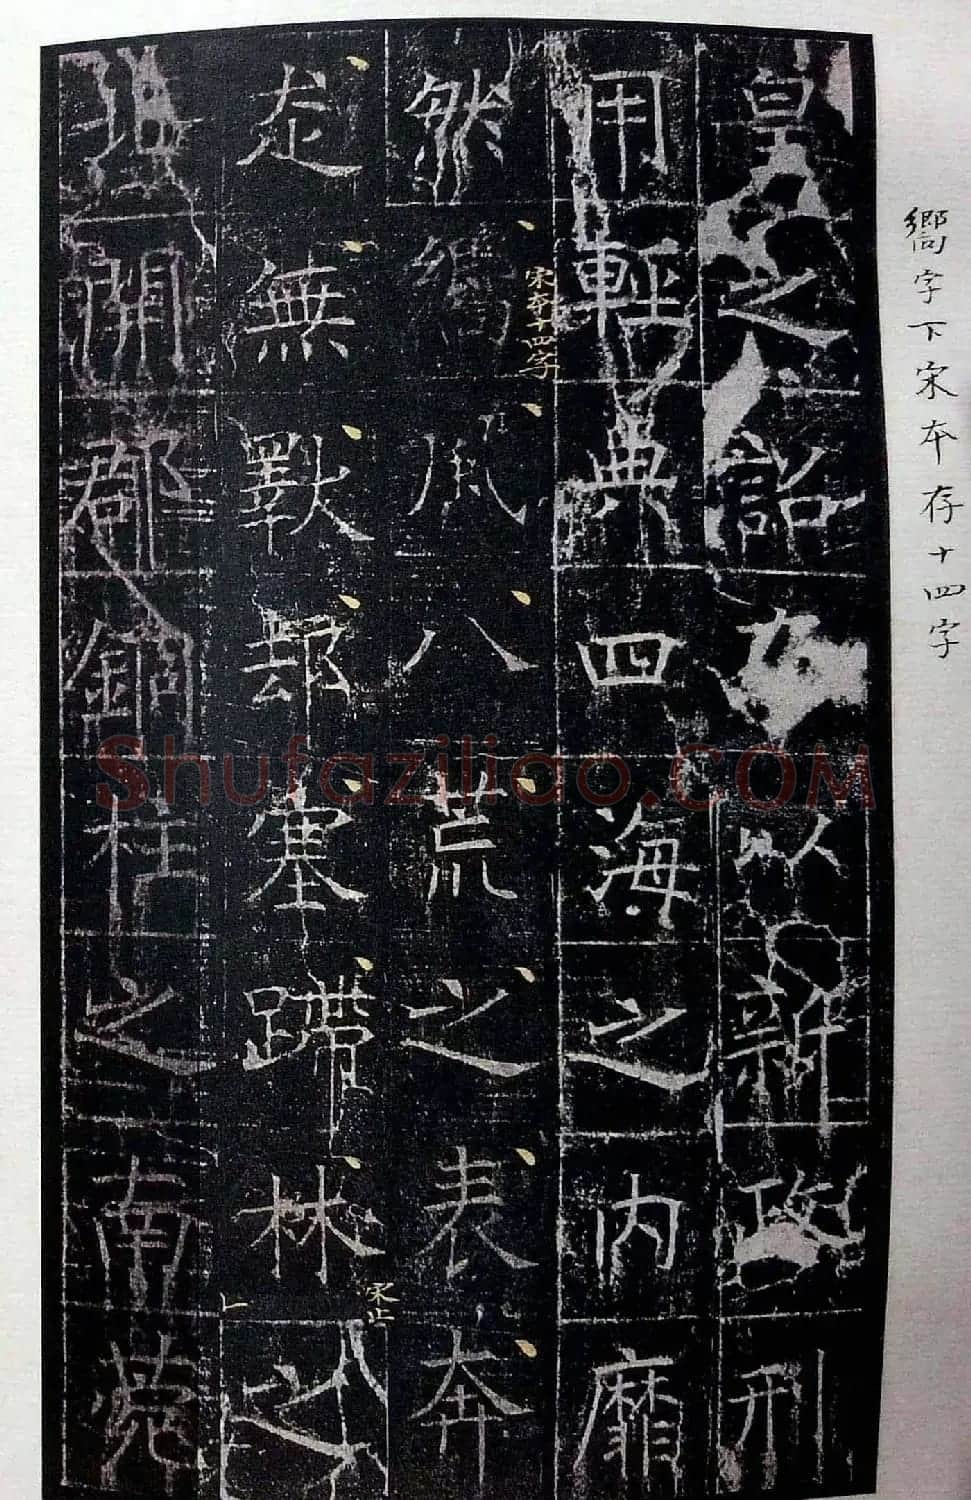 嚮字下宋本存十四字
皇之詔以新政刑
用輕典四海之内靡
然嚮風八荒之表奔
宋存十四字
走無斁鄣塞蹛林之
宋止
北開郡銅柱之南莞
Shufaziliao.COM